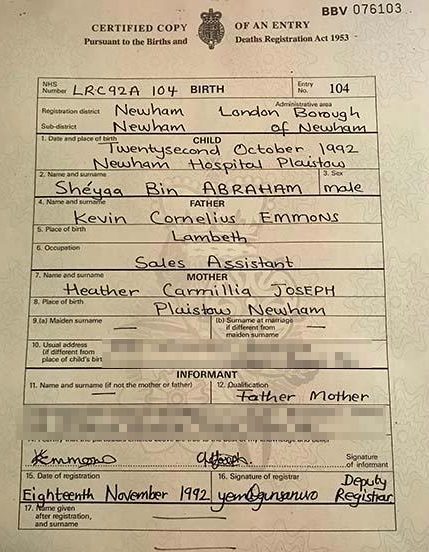 BBV 076103
CERTIFIED COPY OF AN ENTRY
Pursuant to the Births and Deaths Registration Act 1953
NHS Number LRC92A 104 BIRTH Entry No. 104
Administrative area
Registration district Newham London Borough
Sub-district Newham of Newham
1. Date and place of birth CHILD
Twentysecond October 1992
Newham Hospital Plaistow
2. Name and surname 3. Sex
Shéyaa Bin ABRAHAM male
4. Name and surname FATHER
Kevin Cornelius EMMONS
5. Place of birth
Lambeth
6. Occupation
Sales Assistant
7. Name and surname MOTHER
Heather Carmillia JOSEPH
8. Place of birth
Plaistow Newham
9.(a) Maiden surname — (b) Surname at marriage if different from maiden surname —
10. Usual address
(if different from
place of child's birth
INFORMANT
11. Name and surname (if not the mother or father) — 12. Qualification
Father Mother
Signature
of informant
15. Date of registration 16. Signature of registrar
Eighteenth November 1992 Deputy Registrar
17. Name given
after registration,
and surname —